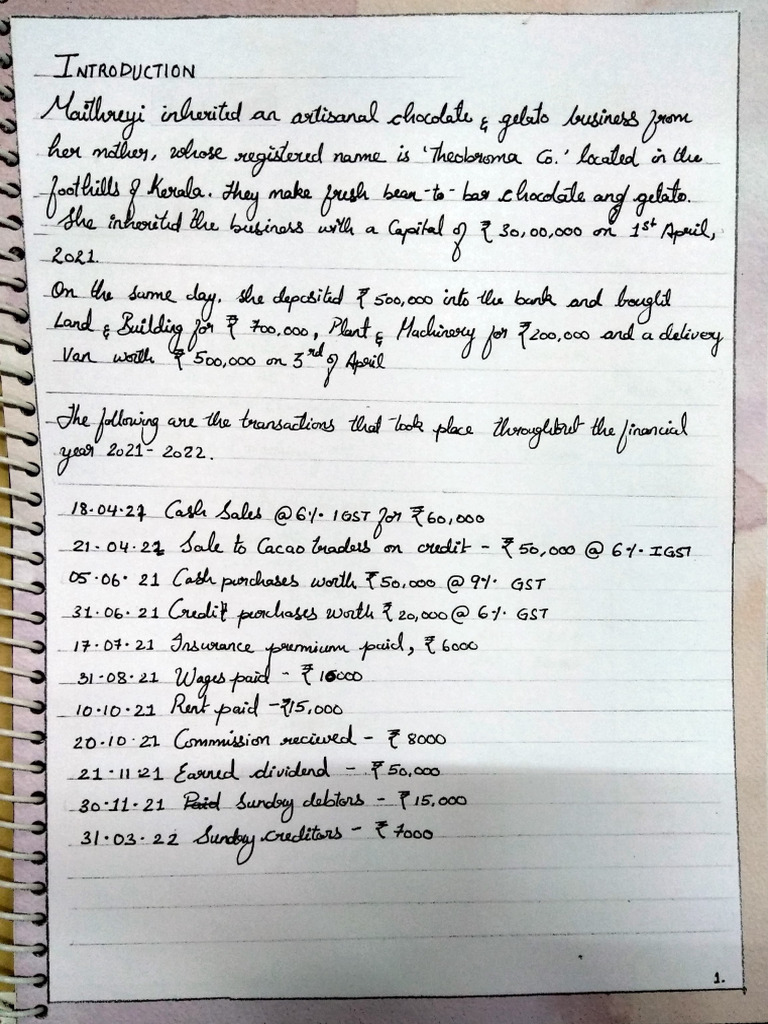 INTRODUCTION
Maithreyi inherited an artisanal chocolate & gelato business from
her mother, whose registered name is 'Theobroma Co.' located in the
foothills of Kerala. They make fresh bean-to-bar chocolate and gelato.
She inherited the business with a Capital of ₹ 30,00,000 on 1st April,
2021.
On the same day, she deposited ₹ 500,000 into the bank and bought
Land & Building for ₹ 700,000, Plant & Machinery for ₹200,000 and a delivery
Van worth ₹ 500,000 on 3rd of April
The following are the transactions that took place throughout the financial
year 2021-2022.
18.04.21 Cash Sales @6% IGST for ₹60,000
21.04.21 Sale to Cacao traders on credit - ₹50,000 @ 6% IGST
05.06.21 Cash purchases worth ₹50,000 @ 9% GST
31.06.21 Credit purchases worth ₹20,000 @ 6% GST
17.07.21 Insurance premium paid, ₹6000
31.08.21 Wages paid - ₹10000
10.10.21 Rent paid -₹15,000
20.10.21 Commission recieved - ₹ 8000
21.11.21 Earned dividend - ₹50,000
30.11.21 Sundry debtors - ₹15,000
31.03.22 Sundry creditors - ₹7000
1.